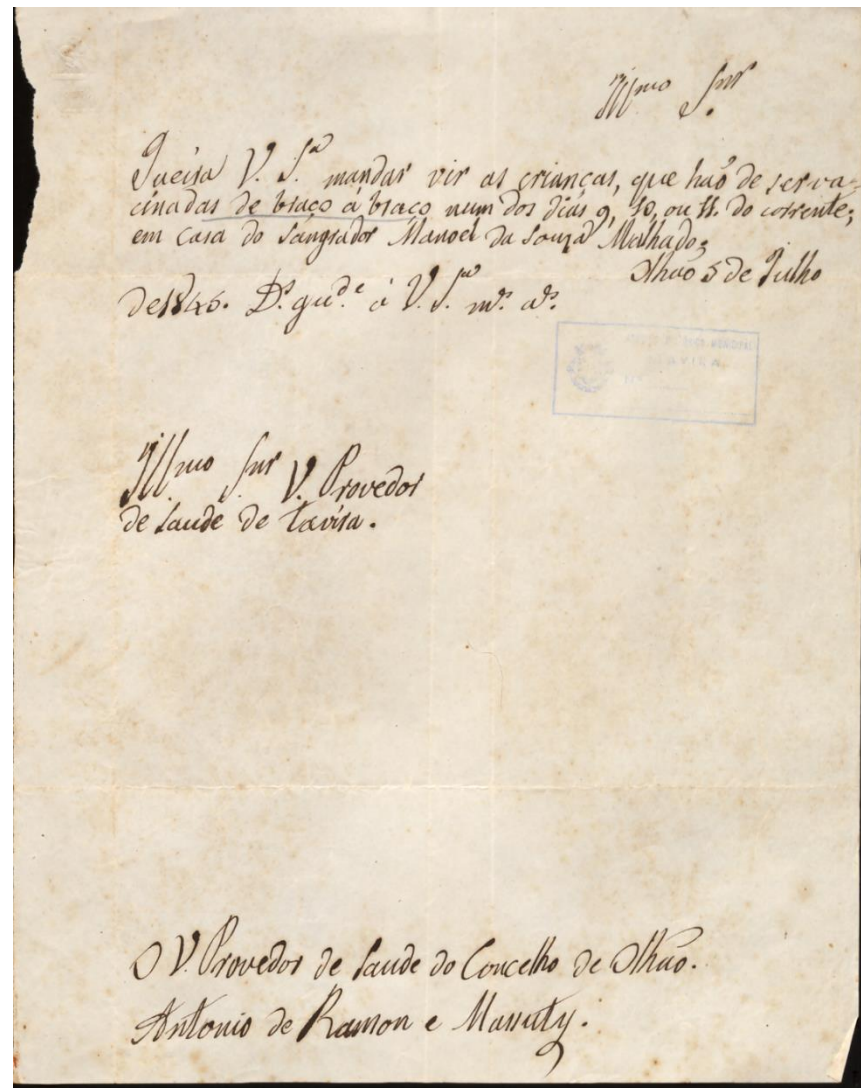 Illmo Snr
Queira V. Sa mandar vir as crianças, que haõ de ser va=
cinadas de braço á braço num dos dias 9, 10, ou 11. do corrente;
em casa do Sangrador Manoel da Souza Malhado;
Olhaõ 5 de Julho
de 1846. Ds. gude. á V. Sa ms. as.
Illmo Snr V. Provedor
de Saude de Tavira.
O V. Provedor de Saude do Concelho de Olhaõ.
Antonio de Ramon e Massuty.